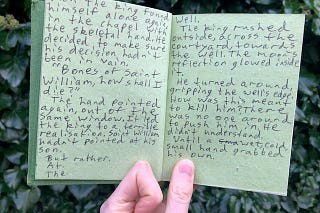 the King found
himself alone again
in the chapel with
the skeletal hand. He
decided to make sure
his decision hadn't
been in vain.
"Bones of Saint
William, how shall I
die?"
The hand pointed
again, out of the
same window. It led
the king to a terrible
realisation. Saint William
hadn't pointed at his
son.
But rather.
At.
The
Well.
The king rushed
outside, across the
courtyard, towards
the well. The moon's
reflection glowed inside
it.
He turned around,
gripping the well's edge.
How was this meant
to kill him? There
was no one around
to push him in. He
didn't understand.
Until a wet, cold,
small hand grabbed
his own.